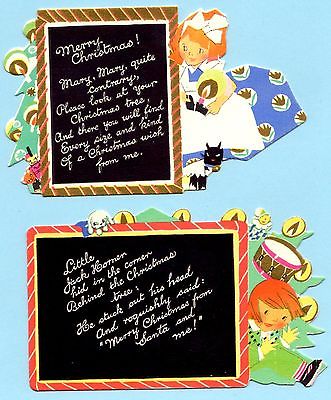 Merry
Christmas!
Mary, Mary, quite
contrary,
Please look at Your
Christmas tree,
And there you will find
Every size and kind
Of a Christmas wish
from me.
Little
Jack Horner
hid in the corner
Behind the Christmas
tree.
He stuck out his head
And roguishly said:
"Merry Christmas from
Santa and
me!"